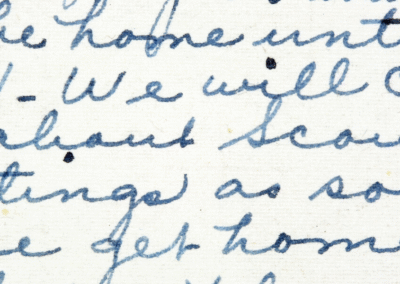 be home unt
- We will c
about Scou
tings as so
e get home